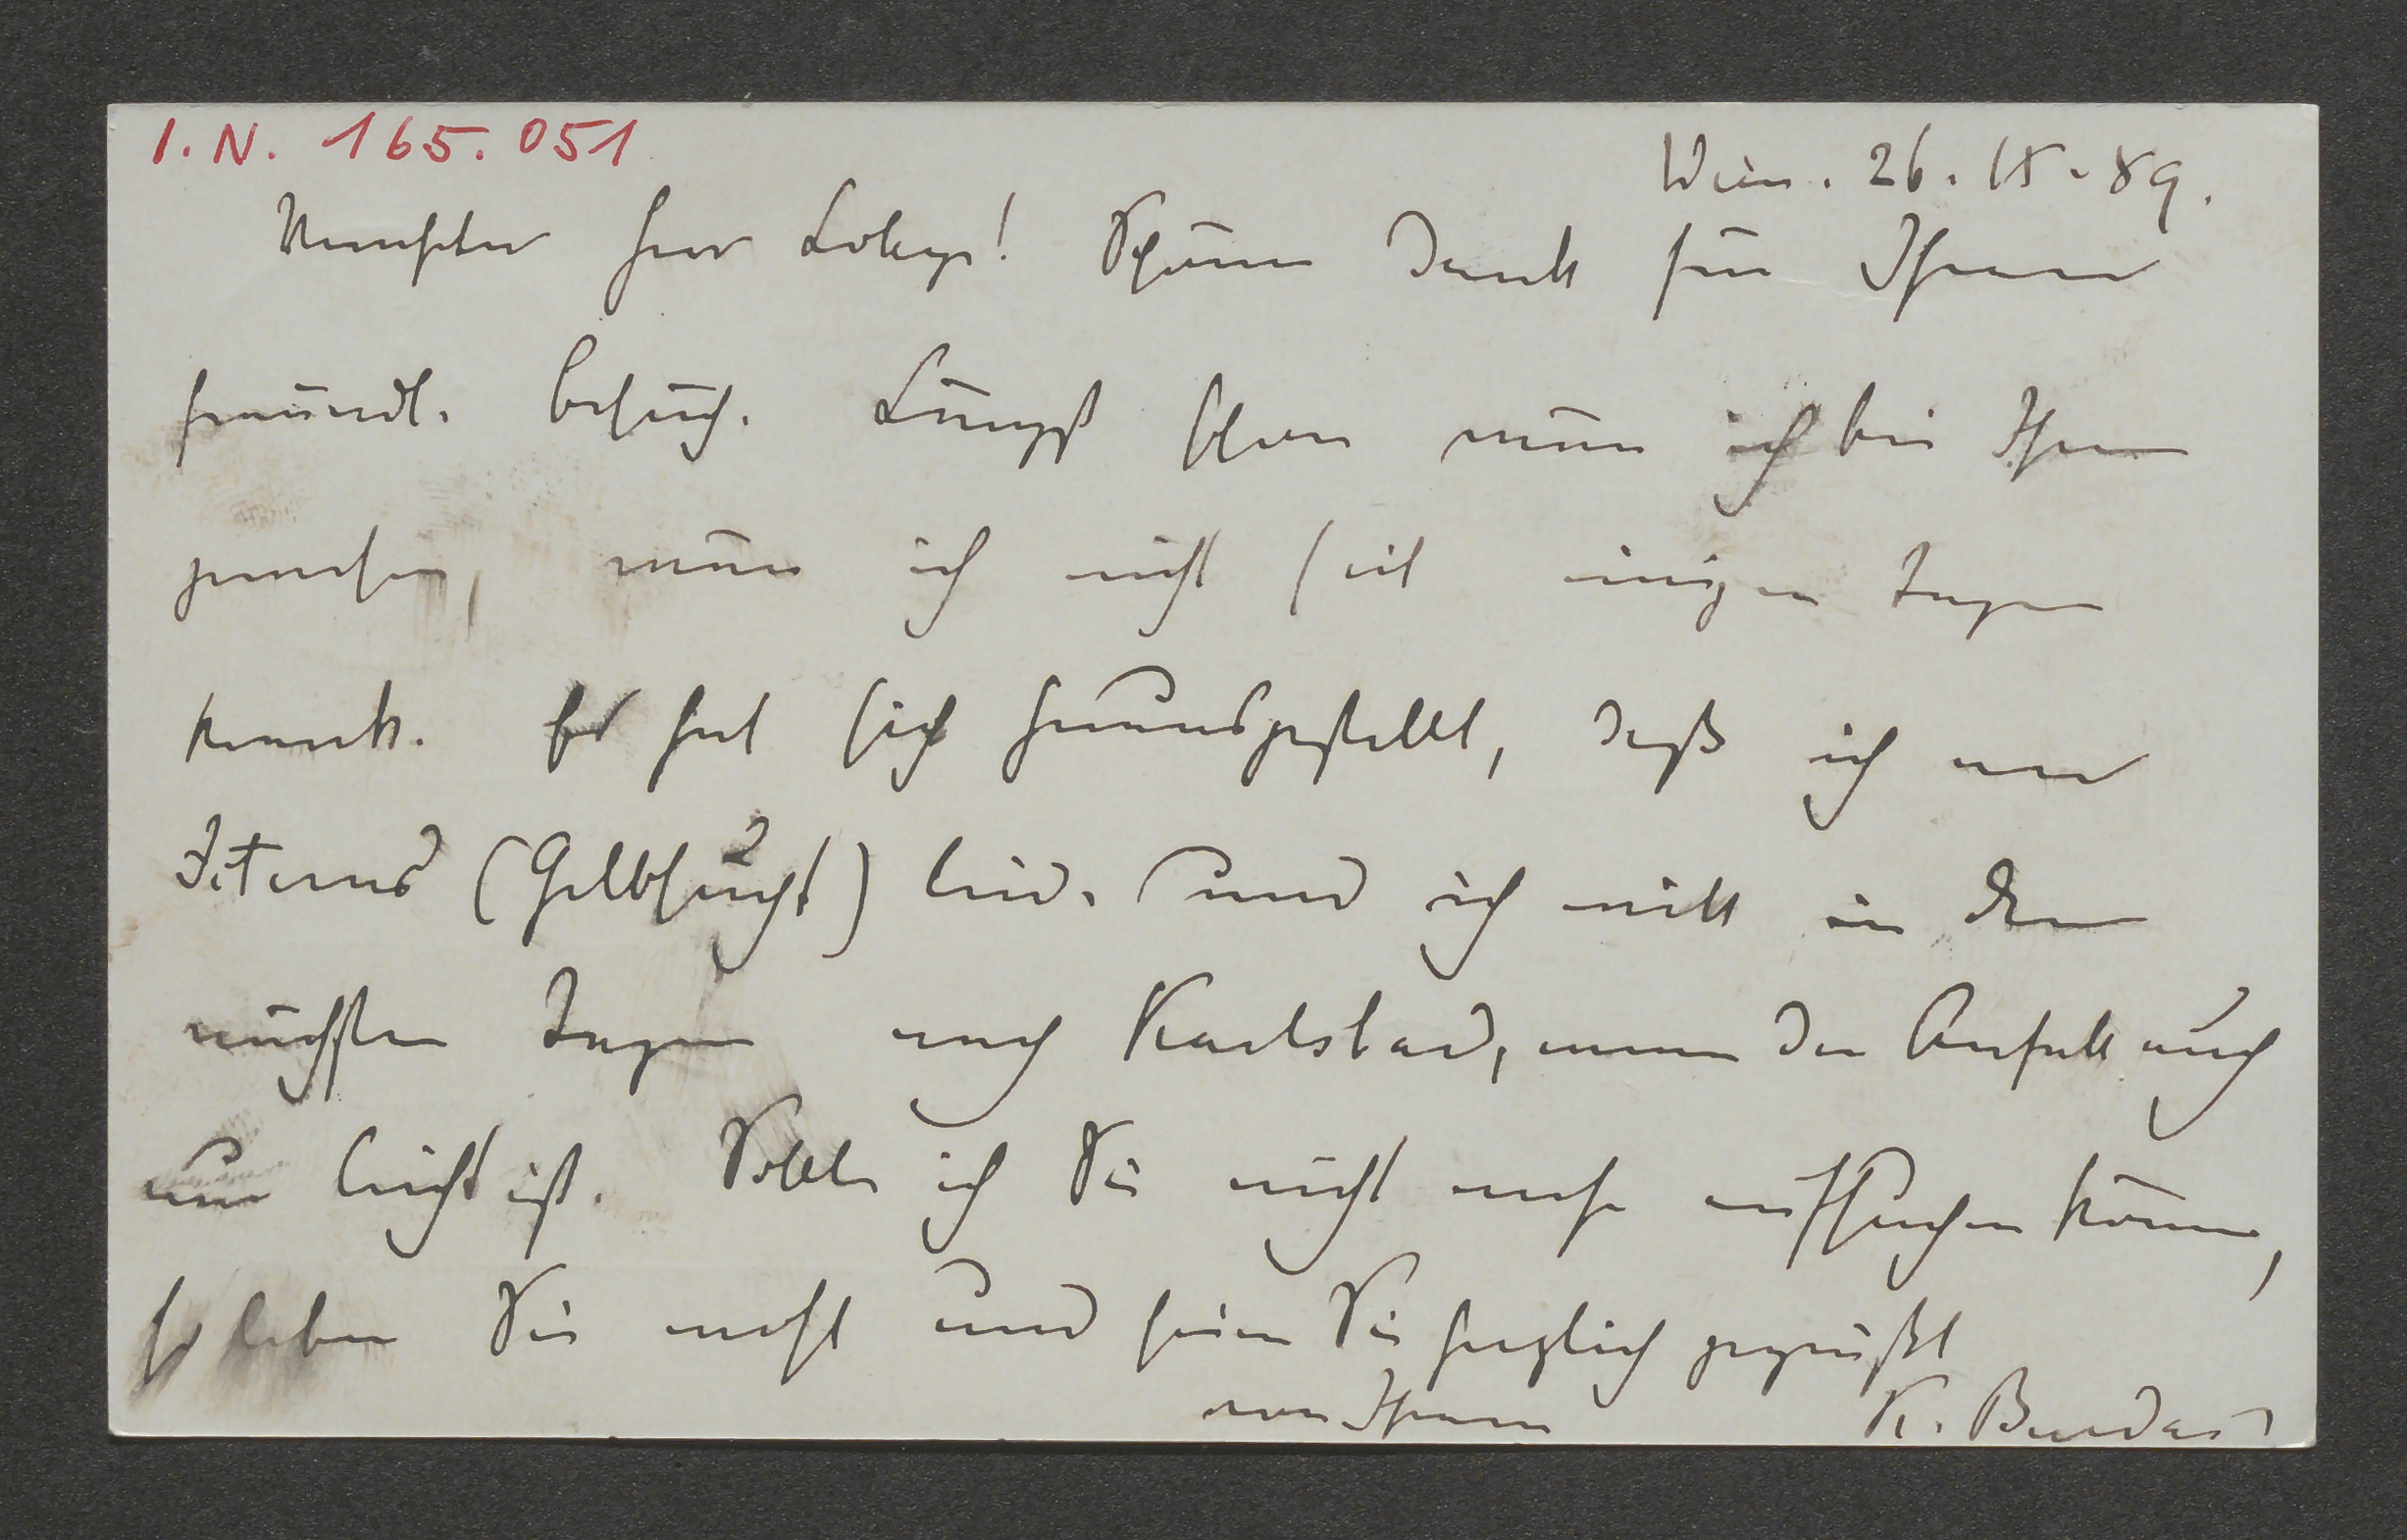 I. N. 165.051
Wien. 26. IX. 89.
Verehrter Herr Schönen Dank für Ihren
freundl. Besuch. Längst schon wäre ich bei Ihnen
gewesen, wäre ich nicht seit einigen Tagen
krank. Es hat sich herausgestellt, daß ich an
Icterus (Gelbsucht) leid. und ich will in den
nächsten Tagen nach Karlsbad, wenn der Anfall auch
nur leicht ist. Sollte ich Sie nicht mehr aufsuchen können,
so leben Sie wohl und seien Sie herzlich gegrüßt
von Ihrem K.